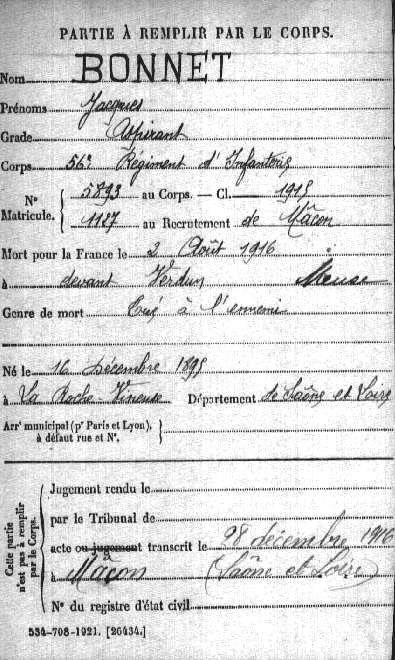 PARTIE À REMPLIR PAR LE CORPS.
Nom BONNET
Prénoms Jacques
Grade Aspirant
Corps 56e Régiment d'Infanterie
N° Matricule. 5893 au Corps. — Cl. 1915
1127 au Recrutement de Mâcon
Mort pour la France le 2 Août 1916
à devant Verdun Meuse
Genre de mort Tué à l'ennemi
Né le 16 Décembre 1895
à La Roche-Vineuse Département de Saône et Loire
Arrt municipal (pr Paris et Lyon),
à défaut rue et N°.
Cette partie n'est pas à remplir par le Corps.
Jugement rendu le
par le Tribunal de
acte ou jugement transcrit le 28 décembre 1916
à Mâcon (Saône et Loire)
N° du registre d'état civil
534-708-1921. [26434.]